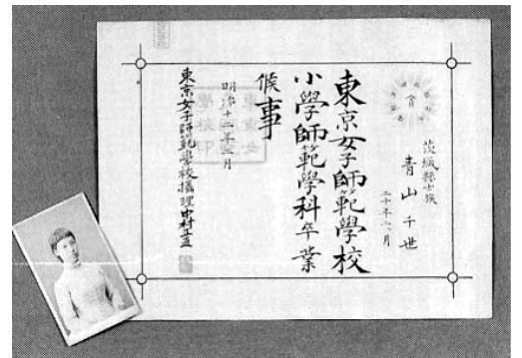 茨城縣士族
青山千世
二十年二月
東京女子師範學校
小學師範學科卒業
候事
明治十二年三月
東京女子師範學校攝理中村正直